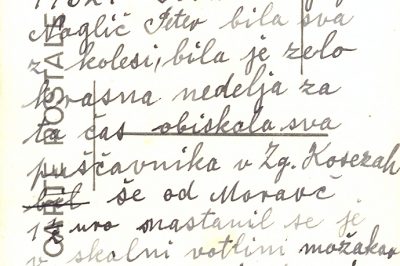 Naglič Peter bila sva
z kolesi, bila je zelo
krasna nedelja za
ta čas obiskala sva
puščavnika v Zg. Kosezah
še od Moravč
1½ uro nastanil se je
v skalni votlini možakar
CARTE POSTALE